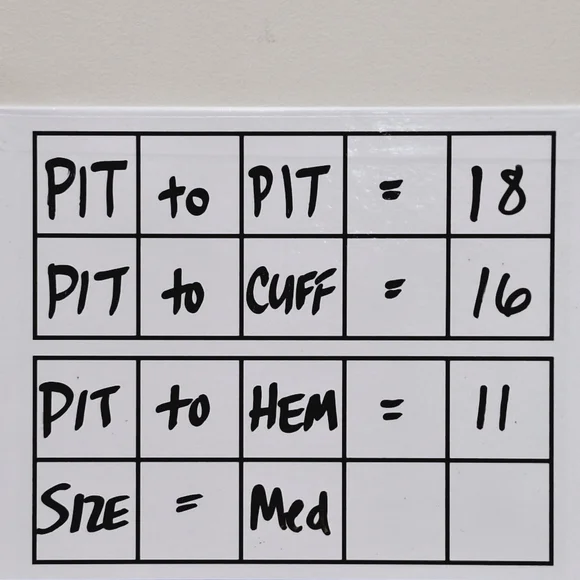 PIT to PIT = 18
PIT to CUFF = 16
PIT to HEM = 11
SIZE = Med